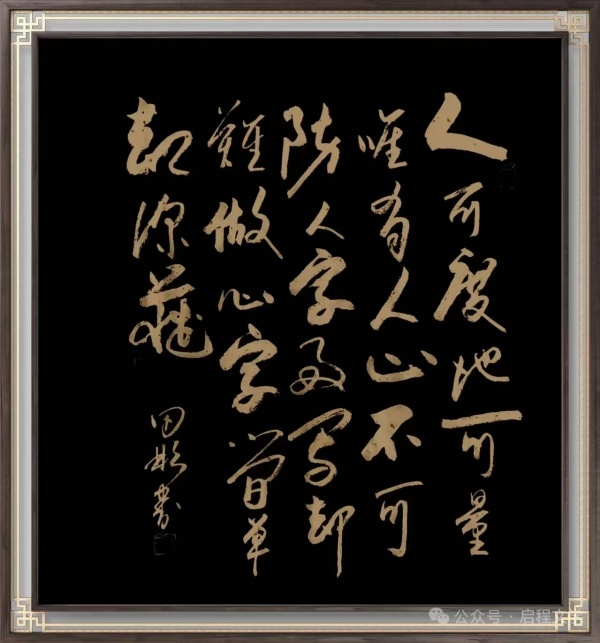 人可度地可量
唯有人心不可
防人字易写却
难做心字简单
却深藏
田彬書
公众号·启程